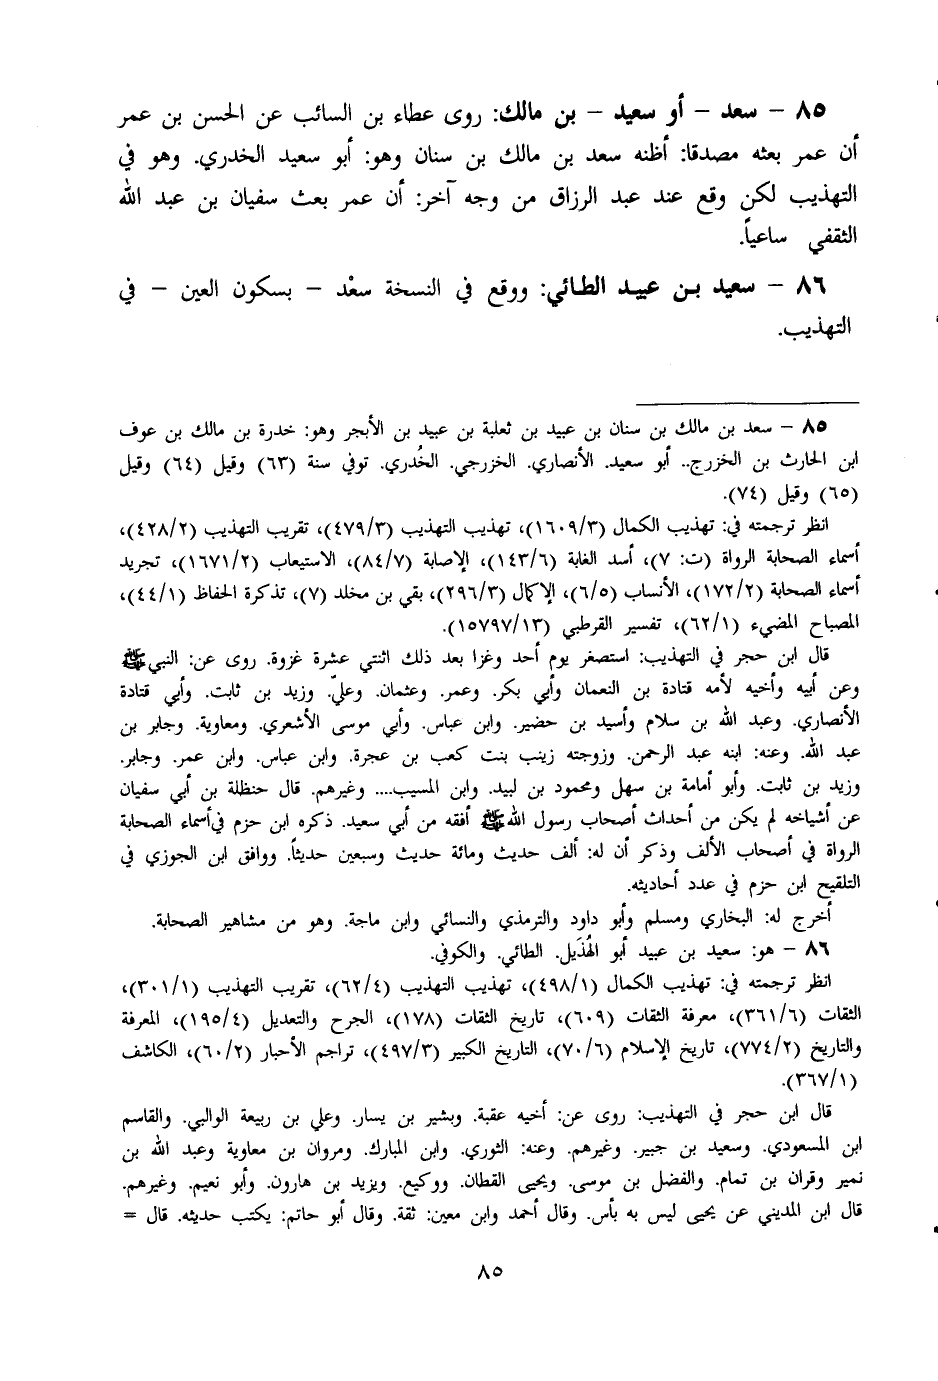 ٨٥ – سعد – أو سعيد – بن مالك: روى عطاء بن السائب عن الحسن بن عمر
أن عمر بعثه مصدقا: أظنه سعد بن مالك بن سنان وهو: أبو سعيد الخدري. وهو في
التهذيب لكن وقع عند عبد الرزاق من وجه آخر: أن عمر بعث سفيان بن عبد الله
الثقفي ساعياً.
٨٦ – سعيد بن عبيد الطائي: ووقع في النسخة سعْد – بسكون العين – في
التهذيب.
٨٥ – سعد بن مالك بن سنان بن عبيد بن ثعلبة بن عبيد بن الأبجر وهو: خدرة بن مالك بن عوف
ابن الحارث بن الخزرج.. أبو سعيد. الأنصاري. الخزرجي. الخُدري. توفي سنة (٦٣) وقيل (٦٤) وقيل
(٦٥) وقيل (٧٤).
انظر ترجمته في: تهذيب الكمال (١٦٠٩/٣)، تهذيب التهذيب (٤٧٩/٣)، تقريب التهذيب (٤٢٨/٢)،
أسماء الصحابة الرواة (ت: ٧)، أسد الغابة (١٤٣/٦)، الإصابة (٨٤/٧)، الاستيعاب (١٦٧١/٢)، تجريد
أسماء الصحابة (١٧٢/٢)، الأنساب (٦/٥)، الإكمال (٢٩٦/٣)، بقي بن مخلد (٧)، تذكرة الحفاظ (٤٤/١)،
المصباح المضيء (٦٢/١)، تفسير القرطبي (١٥٧٩٧/١٣).
قال ابن حجر في التهذيب: استصغر يوم أحد وغزا بعد ذلك اثنتي عشرة غزوة. روى عن: النبي ﷺ
وعن أبيه وأخيه لأمه قتادة بن النعمان وأبي بكر. وعمر. وعثمان. وعليّ. وزيد بن ثابت. وأبي قتادة
الأنصاري. وعبد الله بن سلام وأسيد بن حضير. وابن عباس. وأبي موسى الأشعري. ومعاوية. وجابر بن
عبد الله. وعنه: ابنه عبد الرحمن. وزوجته زينب بنت كعب بن عجرة. وابن عباس. وابن عمر. وجابر.
وزيد بن ثابت. وأبو أمامة بن سهل ومحمود بن لبيد. وابن المسيب.... وغيرهم. قال حنظلة بن أبي سفيان
عن أشياخه لم يكن من أحداث أصحاب رسول الله ﷺ أفقه من أبي سعيد. ذكره ابن حزم في أسماء الصحابة
الرواة في أصحاب الألف وذكر أن له: ألف حديث ومائة حديث وسبعين حديثاً. ووافق ابن الجوزي في
التلقيح ابن حزم في عدد أحاديثه.
أخرج له: البخاري ومسلم وأبو داود والترمذي والنسائي وابن ماجة. وهو من مشاهير الصحابة.
٨٦ – هو: سعيد بن عبيد أبو الهُذَيل. الطائي. والكوفي.
انظر ترجمته في: تهذيب الكمال (٤٩٨/١)، تهذيب التهذيب (٦٢/٤)، تقريب التهذيب (٣٠١/١)،
الثقات (٣٦١/٦)، معرفة الثقات (٦٠٩)، تاريخ الثقات (١٧٨)، الجرح والتعديل (١٩٥/٤)، المعرفة
والتاريخ (٧٧٤/٢)، تاريخ الإسلام (٧٠/٦)، التاريخ الكبير (٤٩٧/٣)، تراجم الأحبار (٦٠/٢)، الكاشف
(٣٦٧/١).
قال ابن حجر في التهذيب: روى عن: أخيه عقبة. وبشير بن يسار. وعلي بن ربيعة الوالبي. والقاسم
ابن المسعودي. وسعيد بن جبير. وغيرهم. وعنه: الثوري. وابن المبارك. ومروان بن معاوية وعبد الله بن
نمير وقران بن تمام. والفضل بن موسى. ويحيى القطان. ووكيع. ويزيد بن هارون. وأبو نعيم. وغيرهم.
قال ابن المديني عن يحيى ليس به بأس. وقال أحمد وابن معين: ثقة. وقال أبو حاتم: يكتب حديثه. قال =
٨٥